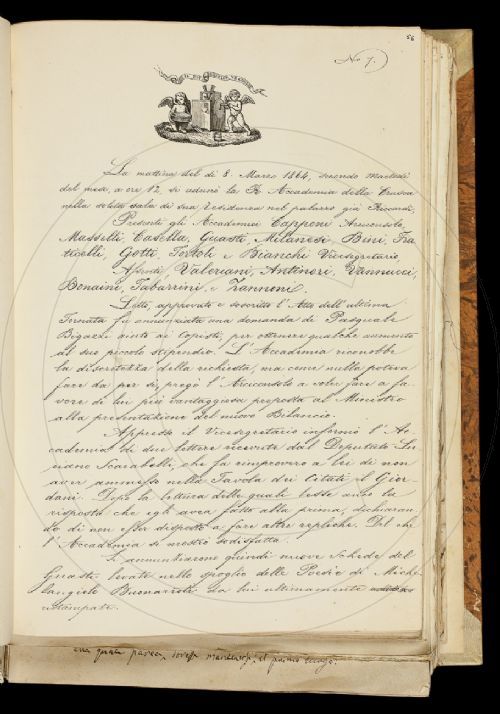 56
No 7.
La mattina del dì 8. Marzo 1864, secondo martedì
del mese, a ore 12, si adunò la R. Accademia della Crusca
nella solita sala di sua residenza nel palazzo già Riccardi.
Presenti gli Accademici Capponi Arciconsolo,
Masselli, Casella, Guasti, Milanesi, Bini, Fra
ticelli, Gotti, Tortoli e Bianchi Vicesegretario.
Assenti, Valeriani, Antinori, Vannucci,
Bonaini, Tabarrini, e Zannoni.
Letto, approvato e soscritto l'Atto dell'ultima
Tornata fu annunziata una domanda di Pasquale
Bigazzi aiuto ai Copisti, per ottenere qualche aumento
al suo piccolo stipendio. L'Accademia riconobbe
la discretezza della richiesta, ma come nulla poteva
fare da per sè, pregò l'Arciconsolo a voler fare a fa-
vore di lui più vantaggiosa proposta al Ministro
alla presentazione del nuovo Bilancio.
Appresso il Vicesegretario informò l'Ac-
cademia di due lettere ricevute dal Deputato Lu-
ciano Scarabelli, che fa rimprovero a lei di non
aver ammesso nella Tavola dei Citati il Gior-
dani. Dopo la lettura delle quali lesse anco la
risposta che egli avea fatto alla prima, dichiaran-
do di non esser disposto a fare altre repliche. Del chè
l'Accademia si mostrò sodisfatta.
Si annunziarono quindi nuove Schede del
Guasti levate nello spoglio delle Poesie di Miche
langiolo Buonarroti da lui ultimamente
ristampate.